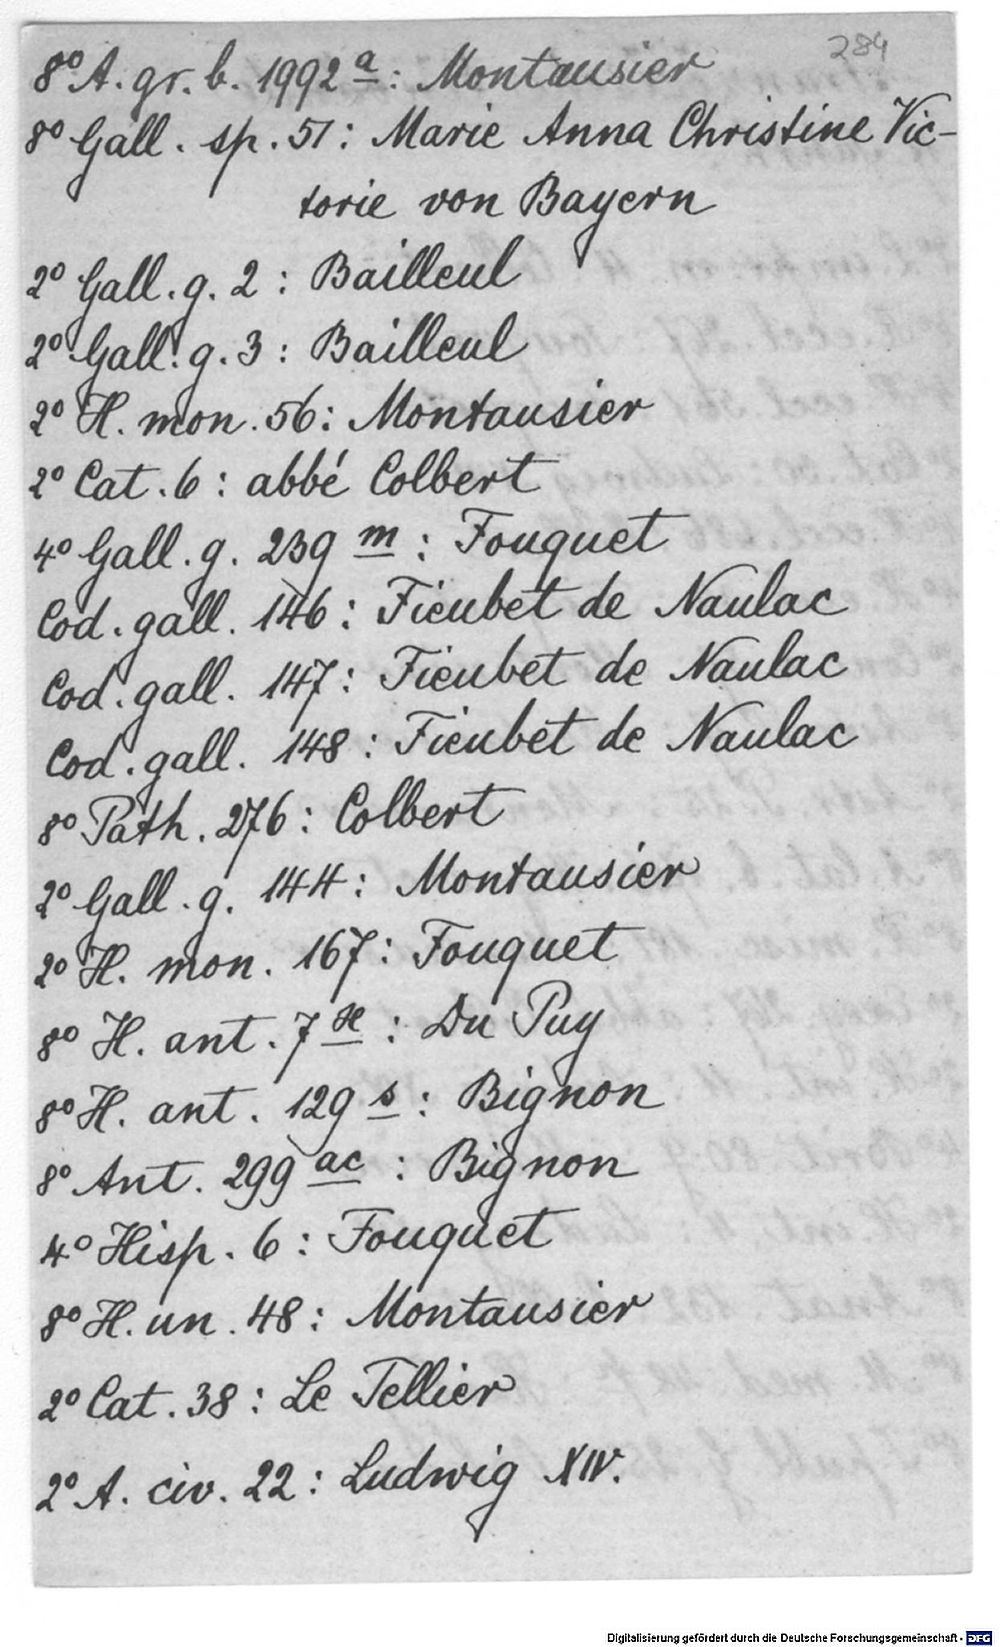 284
8° A. gr. b. 1992 a : Montausier
8° Gall. sp. 51 : Marie Anna Christine Vic-
torie von Bayern
2° Gall. g. 2 : Bailleul
2° Gall. g. 3 : Bailleul
2° H. mon. 56 : Montausier
2° Cat. 6 : abbé Colbert
4° Gall. g. 239 m : Fouquet
Cod. gall. 146 : Fieubet de Naulac
Cod. gall. 147 : Fieubet de Naulac
Cod. gall. 148 : Fieubet de Naulac
8° Path. 276 : Colbert
2° Gall. g. 144 : Montausier
2° H. mon. 167 : Fouquet
8° H. ant. 7 : Du Puy
8° H. ant. 129 s : Bignon
8° Ant. 299 ac : Bignon
4° Hisp. 6 : Fouquet
8° H. un. 48 : Montausier
2° Cat. 38 : Le Tellier
2° A. civ. 22 : Ludwig XIV.
Digitalisierung gefördert durch die Deutsche Forschungsgemeinschaft - DFG